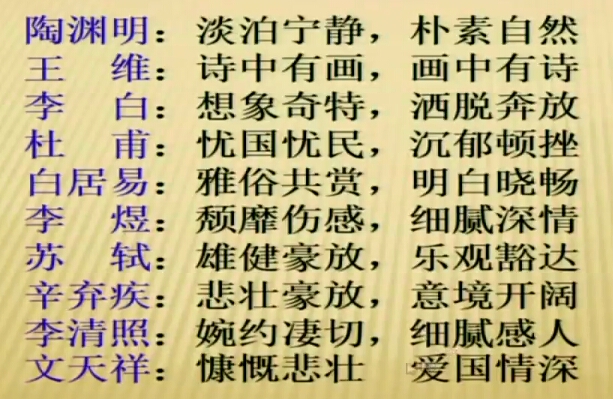 陶渊明：淡泊宁静，朴素自然
王　维：诗中有画，画中有诗
李　白：想象奇特，洒脱奔放
杜　甫：忧国忧民，沉郁顿挫
白居易：雅俗共赏，明白晓畅
李　煜：颓靡伤感，细腻深情
苏　轼：雄健豪放，乐观豁达
辛弃疾：悲壮豪放，意境开阔
李清照：婉约凄切，细腻感人
文天祥：慷慨悲壮　爱国情深